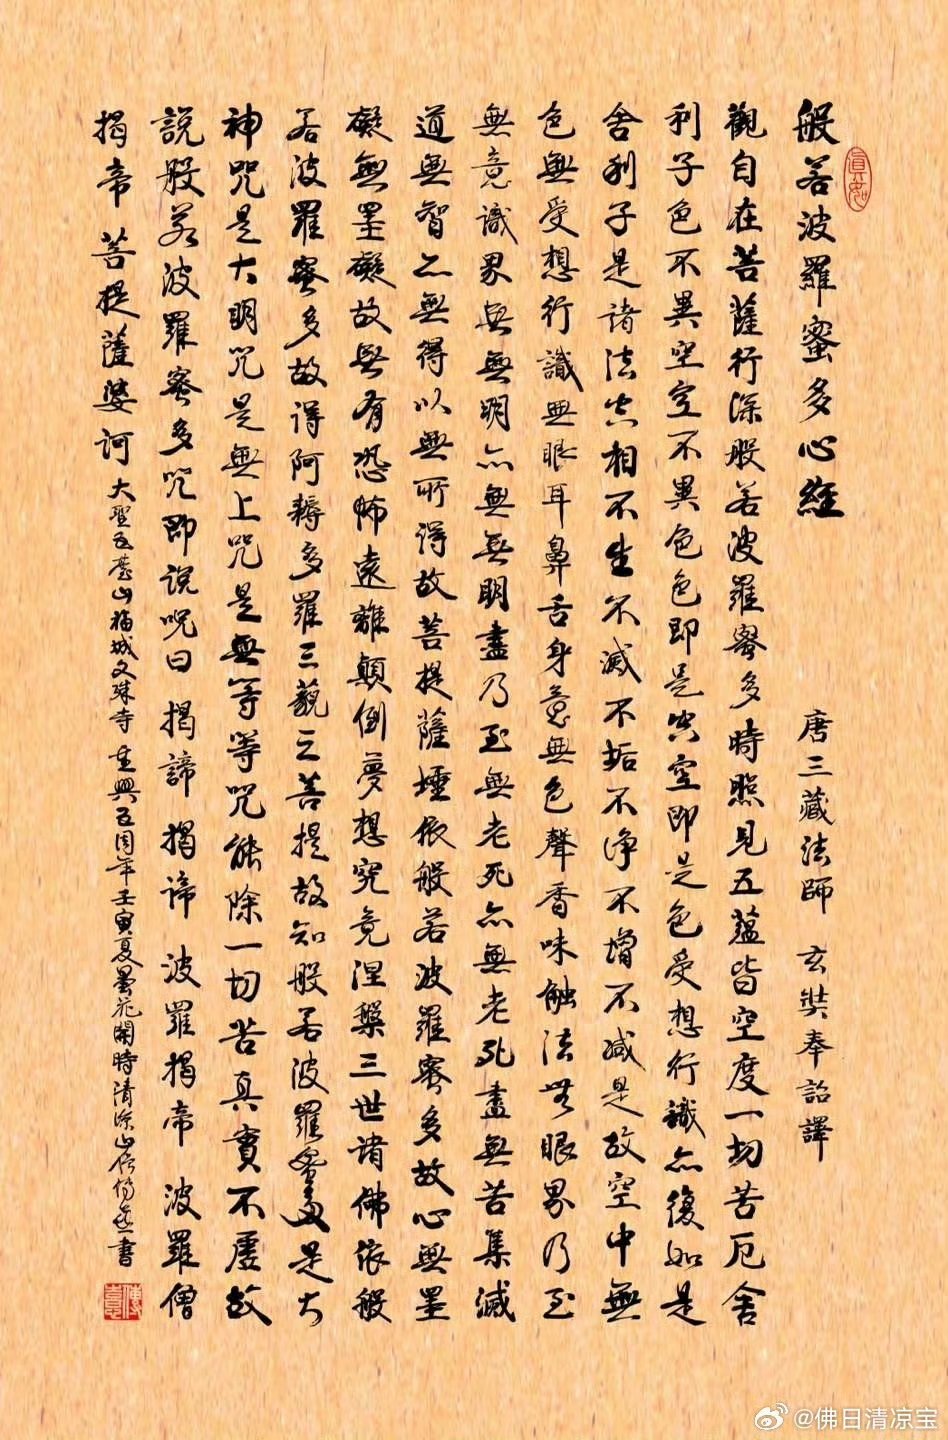 眞如
般若波羅蜜多心經 唐三藏法師 玄奘奉詔譯
觀自在菩薩行深般若波羅蜜多時照見五蘊皆空度一切苦厄舍
利子色不異空空不異色色即是空空即是色受想行識亦復如是
舍利子是諸法空相不生不滅不垢不淨不增不減是故空中無
色無受想行識無眼耳鼻舌身意無色聲香味触法無眼界乃至
無意識界無無明亦無無明盡乃至無老死亦無老死盡無苦集滅
道無智亦無得以無所得故菩提薩埵依般若波羅蜜多故心無罣
礙無罣礙故無有恐怖遠離顛倒夢想究竟涅槃三世諸佛依般
若波羅蜜多故得阿耨多羅三藐三菩提故知般若波羅蜜多是大
神咒是大明咒是無上咒是無等等咒能除一切苦真實不虛故
說般若波羅蜜多咒即說呪曰 揭諦揭諦 波羅揭帝 波羅僧
揭帝 菩提薩婆訶 大聖五臺山福城文殊寺重興五周年壬寅夏曇花開時清涼山居傳意書
傳意
@佛日清凉宝